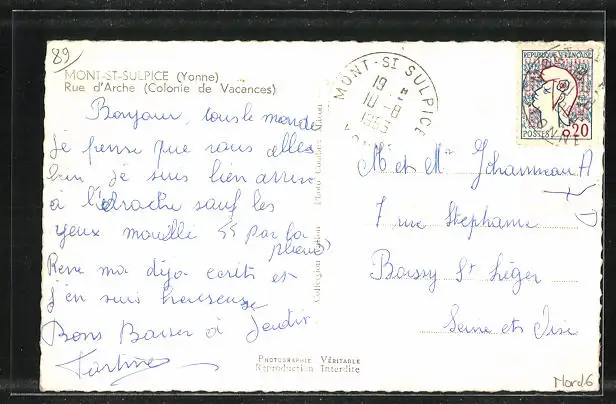 89
MONT-ST-SULPICE (Yonne)
Rue d'Arche (Colonie de Vacances)
Bonjour, tous le monde
je pense que vous allez
bien je suis bien arrivé
à sauf les
yeux mouillé par la
pleure)
Rene ma dija ecrits et
j'en suis heureuse
Bons Baiser à Jeudi
PHOTOGRAPHIE VÉRITABLE
Reproduction Interdite
MONT-ST SULPICE
19 H
10-8
1963
YONNE
REPUBLIQUE FRANÇAISE
POSTES 0,20
M et Me Johanneau A
7 rue Stephanie
Boissy St Léger
Seine et Oise
Mord6